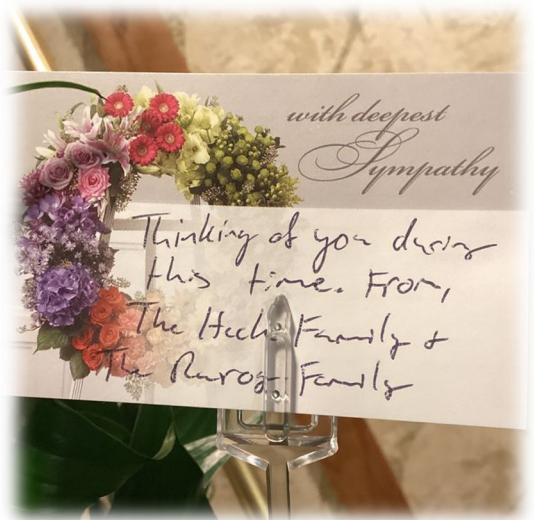 with deepest
Sympathy
Thinking of you during
this time. From,
The Family &
The Family